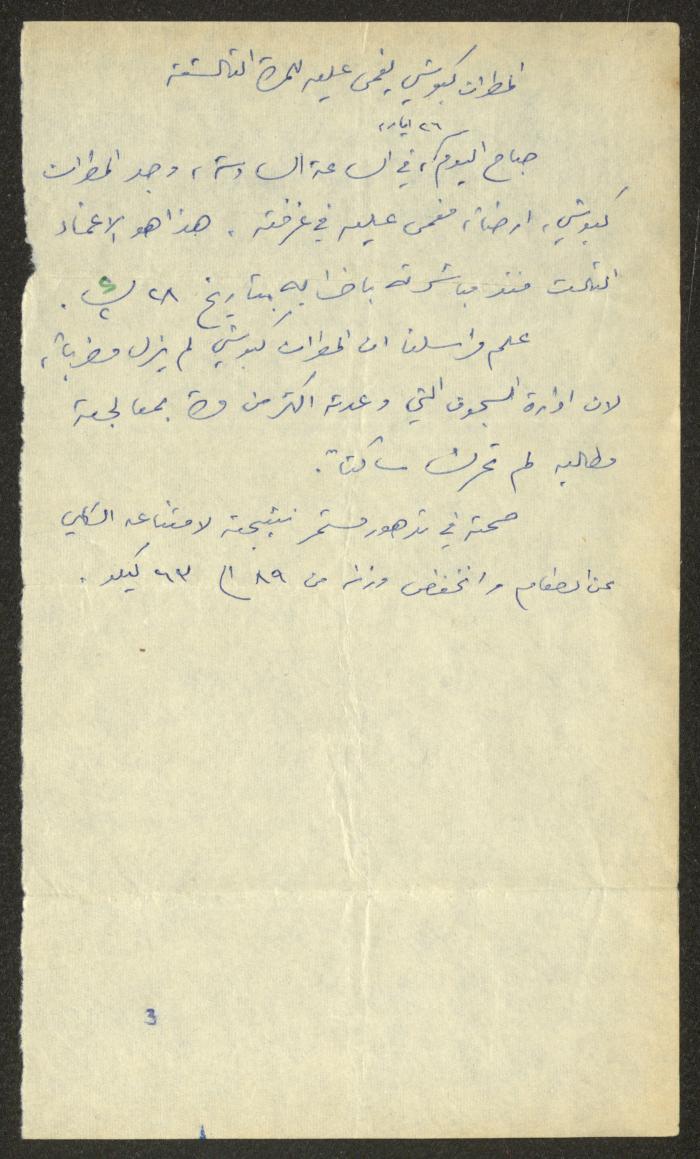 المطران كبوشي يغمى عليه للمرة الثالثة
٢٦ ايار،
صباح اليوم، في الساعة السادسة، وجد المطران
كبوشي، ارضا، مغمى عليه في غرفته. هذا هو الاغماء
الثالث منذ مباشرته باضرابه بتاريخ ٢٨ ك٢.
علم مراسلنا ان المطران كبوشي لم يزل مضربا،
لان ادارة السجون التي وعدته اكثر من مرة بمعالجة
مطالبه لم تحرك ساكنا.
صحته في تدهور مستمر نتيجة لامتناعه الكلي
عن الطعام وانخفض وزنه من ٨٩ الى ٦٣ كيلو.
3